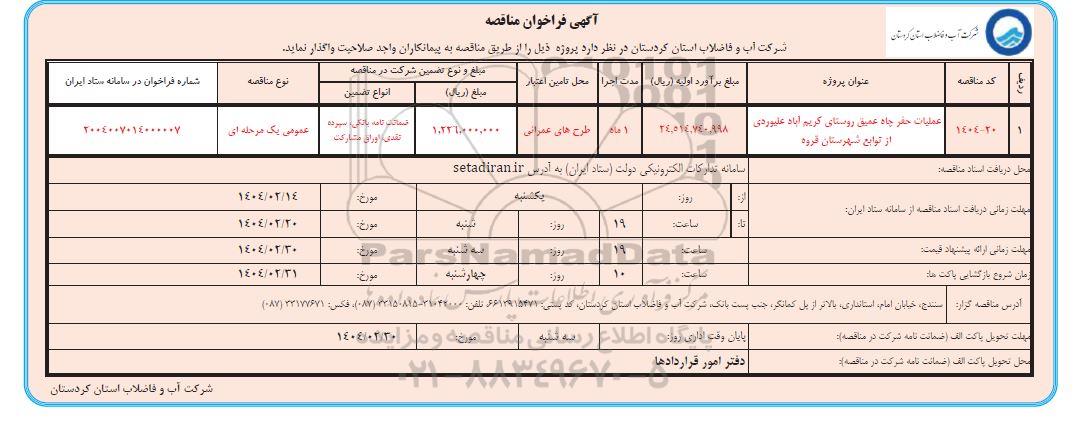 آگهی فراخوان مناقصه
شرکت آب و فاضلاب استان کردستان
شرکت آب و فاضلاب استان کردستان در نظر دارد پروژه ذیل را از طریق مناقصه به پیمانکاران واجد صلاحیت واگذار نماید.
ردیف کد مناقصه عنوان پروژه مبلغ برآورد اولیه (ریال) مدت اجرا محل تامین اعتبار مبلغ و نوع تضمین شرکت در مناقصه نوع مناقصه شماره فراخوان در سامانه ستاد ایران
مبلغ (ریال) انواع تضمین
۱ ۱۴۰۴-۲۰ عملیات حفر چاه عمیق روستای کریم آباد علیوردی از توابع شهرستان قروه ۲۴,۵۱۴,۷۴۰,۹۹۸ ۱ ماه طرح های عمرانی ۱,۲۲۶,۰۰۰,۰۰۰ ضمانت نامه بانکی، سپرده نقدی، اوراق مشارکت عمومی یک مرحله ای ۲۰۰۴۰۰۷۰۱۴۰۰۰۰۰۷
محل دریافت اسناد مناقصه: سامانه تدارکات الکترونیکی دولت (ستاد ایران) به آدرس setadiran.ir
مهلت زمانی دریافت اسناد مناقصه از سامانه ستاد ایران: از: روز: یکشنبه مورخ: ۱۴۰۴/۰۲/۱۴
تا: ساعت: ۱۹ روز: شنبه مورخ: ۱۴۰۴/۰۲/۲۰
مهلت زمانی ارائه پیشنهاد قیمت: ساعت: ۱۹ روز: سه شنبه مورخ: ۱۴۰۴/۰۲/۳۰
زمان شروع بازگشایی پاکت ها: ساعت: ۱۰ روز: چهارشنبه مورخ: ۱۴۰۴/۰۲/۳۱
آدرس مناقصه گزار: سنندج، خیابان امام، استانداری، بالاتر از پل کمانگر، جنب پست بانک، شرکت آب و فاضلاب استان کردستان، کد پستی: ۶۶۱۳۹۱۵۴۷۱، تلفن: ۳۱۰۴۲۰۰۰-۳۳۱۵۰۸۱۵ (۰۸۷)، فکس: ۳۳۱۷۷۶۷۱ (۰۸۷)
مهلت تحویل پاکت الف (ضمانت نامه شرکت در مناقصه): پایان وقت اداری روز: سه شنبه مورخ: ۱۴۰۴/۰۲/۳۰
محل تحویل پاکت الف (ضمانت نامه شرکت در مناقصه): دفتر امور قراردادها
شرکت آب و فاضلاب استان کردستان
ParsNamadData
پایگاه اطلاع رسانی مناقصه و مزایده
۰۲۱-۸۸۳۴۹۶۷۰-۵